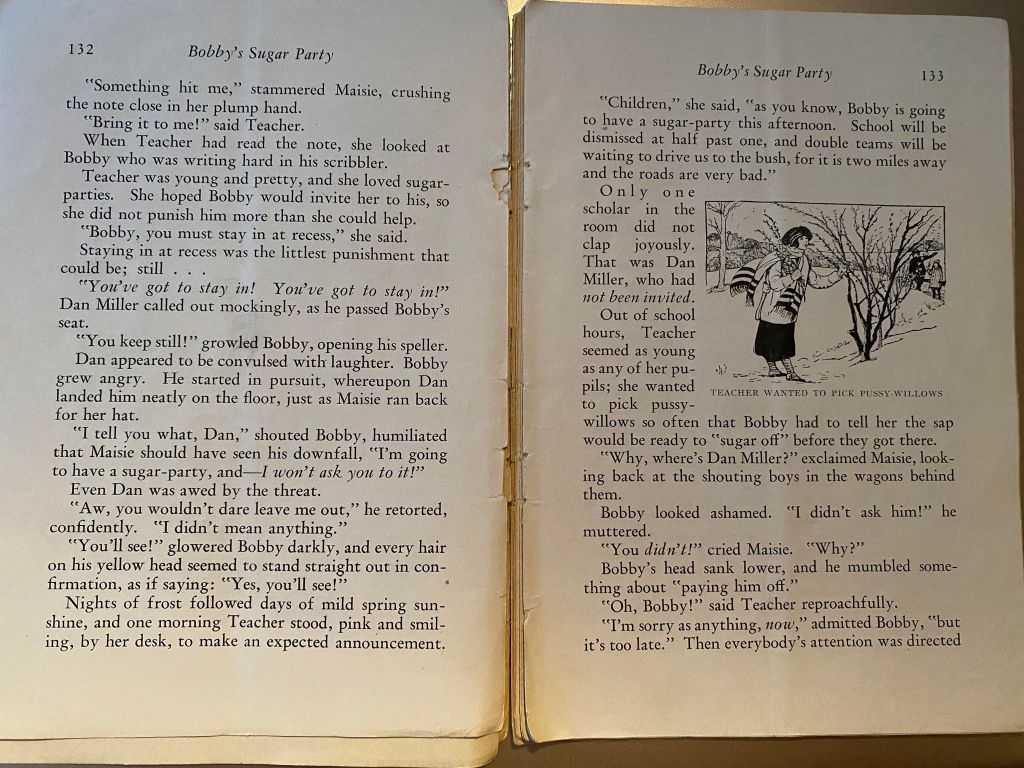 132
Bobby's Sugar Party
"Something hit me," stammered Maisie, crushing
the note close in her plump hand.
"Bring it to me!" said Teacher.
When Teacher had read the note, she looked at
Bobby who was writing hard in his scribbler.
Teacher was young and pretty, and she loved sugar-
parties. She hoped Bobby would invite her to his, so
she did not punish him more than she could help.
"Bobby, you must stay in at recess," she said.
Staying in at recess was the littlest punishment that
could be; still . . .
"You've got to stay in! You've got to stay in!"
Dan Miller called out mockingly, as he passed Bobby's
seat.
"You keep still!" growled Bobby, opening his speller.
Dan appeared to be convulsed with laughter. Bobby
grew angry. He started in pursuit, whereupon Dan
landed him neatly on the floor, just as Maisie ran back
for her hat.
"I tell you what, Dan," shouted Bobby, humiliated
that Maisie should have seen his downfall, "I'm going
to have a sugar-party, and—I won't ask you to it!"
Even Dan was awed by the threat.
"Aw, you wouldn't dare leave me out," he retorted,
confidently. "I didn't mean anything."
"You'll see!" glowered Bobby darkly, and every hair
on his yellow head seemed to stand straight out in con-
firmation, as if saying: "Yes, you'll see!"
Nights of frost followed days of mild spring sun-
shine, and one morning Teacher stood, pink and smil-
ing, by her desk, to make an expected announcement.
Bobby's Sugar Party
133
"Children," she said, "as you know, Bobby is going
to have a sugar-party this afternoon. School will be
dismissed at half past one, and double teams will be
waiting to drive us to the bush, for it is two miles away
and the roads are very bad."
Only one
scholar in the
room did not
clap joyously.
That was Dan
Miller, who had
not been invited.
Out of school
hours, Teacher
seemed as young
as any of her pu-
pils; she wanted
to pick pussy-
TEACHER WANTED TO PICK PUSSY-WILLOWS
willows so often that Bobby had to tell her the sap
would be ready to "sugar off" before they got there.
"Why, where's Dan Miller?" exclaimed Maisie, look-
ing back at the shouting boys in the wagons behind
them.
Bobby looked ashamed. "I didn't ask him!" he
muttered.
"You didn't!" cried Maisie. "Why?"
Bobby's head sank lower, and he mumbled some-
thing about "paying him off."
"Oh, Bobby!" said Teacher reproachfully.
"I'm sorry as anything, now," admitted Bobby, "but
it's too late." Then everybody's attention was directed